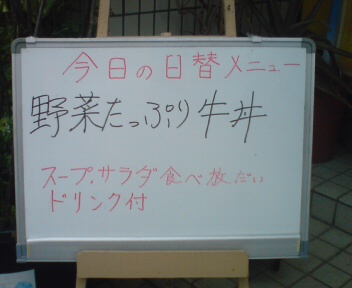 今日の日替メニュー
野菜たっぷり牛丼
スープ、サラダ食べ放だい
ドリンク付